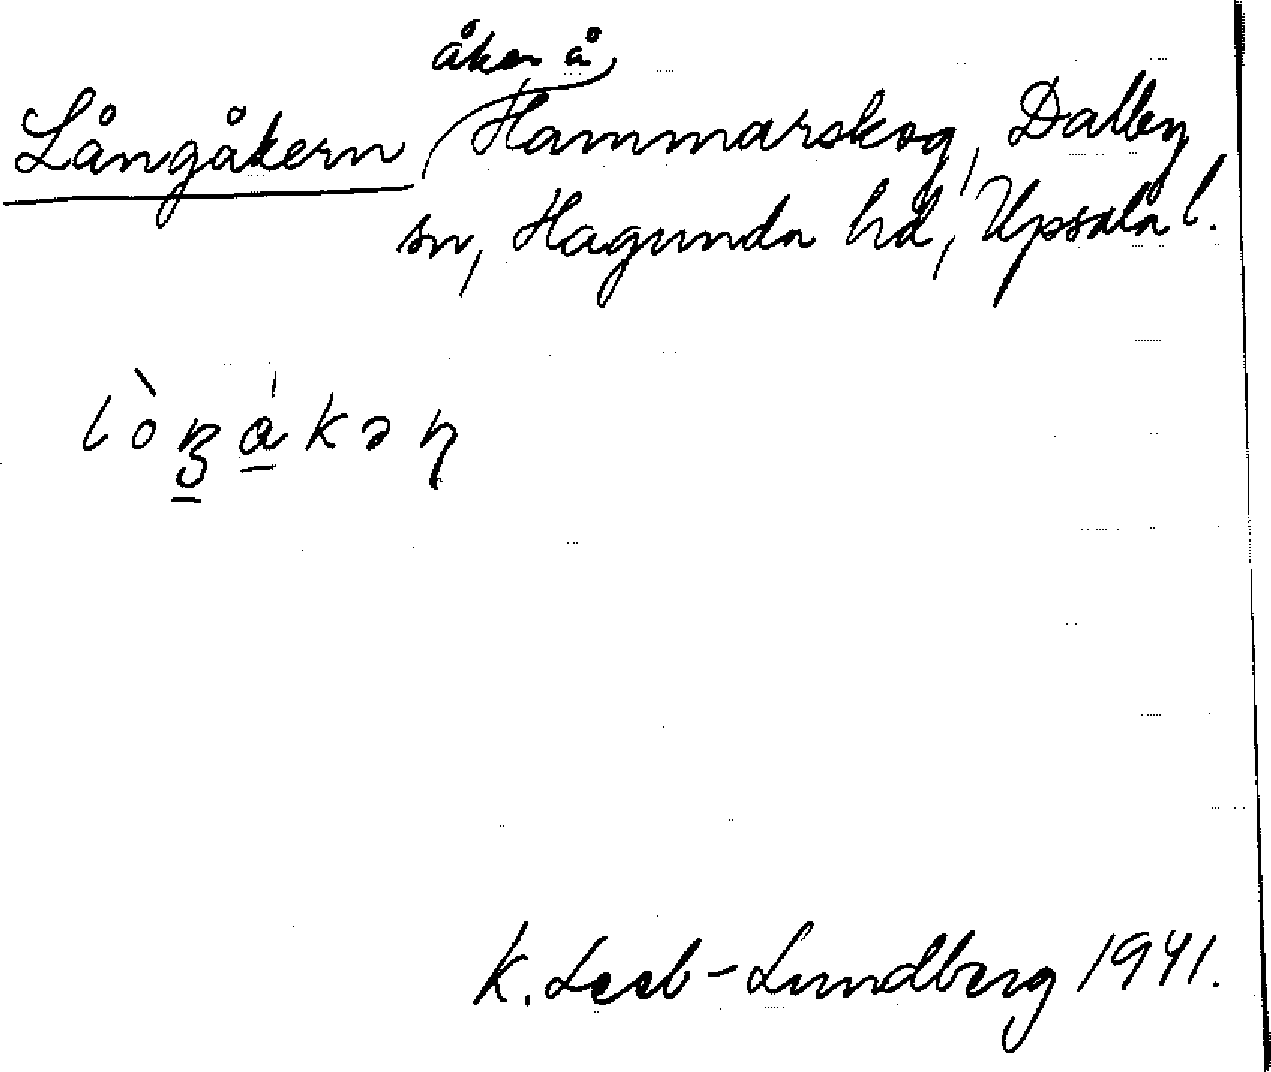 åker å
Långåkern Hammarskog, Dalby
sn, Hagunda hd, Upsala l.
K. Leeb-Lundberg 1941.